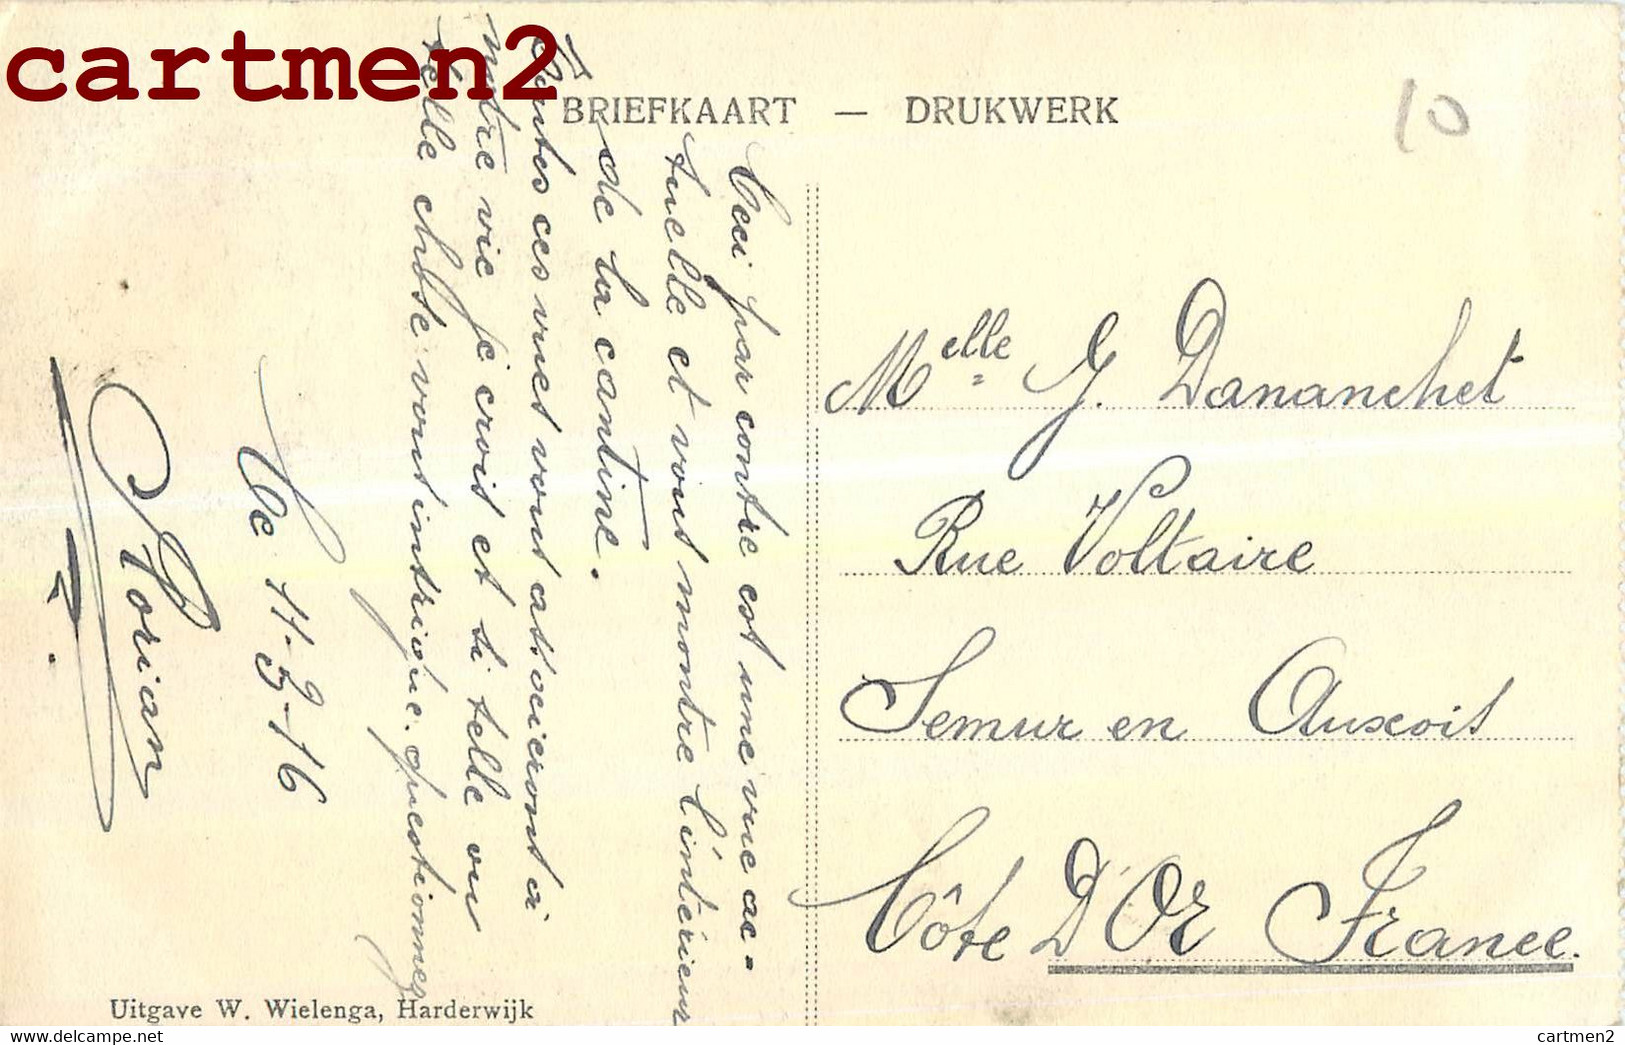 cartmen2
BRIEFKAART — DRUKWERK
10
Ceci par contre est une vue ac=
tuelle et vous montre l'intérieur
de la cantine.
Toutes ces vues vous associeront à
notre vie je crois et si telle ou
telle chose vous intrigue. questionnez
Ce 11-3-16
Melle G. Dananchet
Rue Voltaire
Semur en Auxois
Côte D'Or France.
Uitgave W. Wielenga, Harderwijk
cartmen2